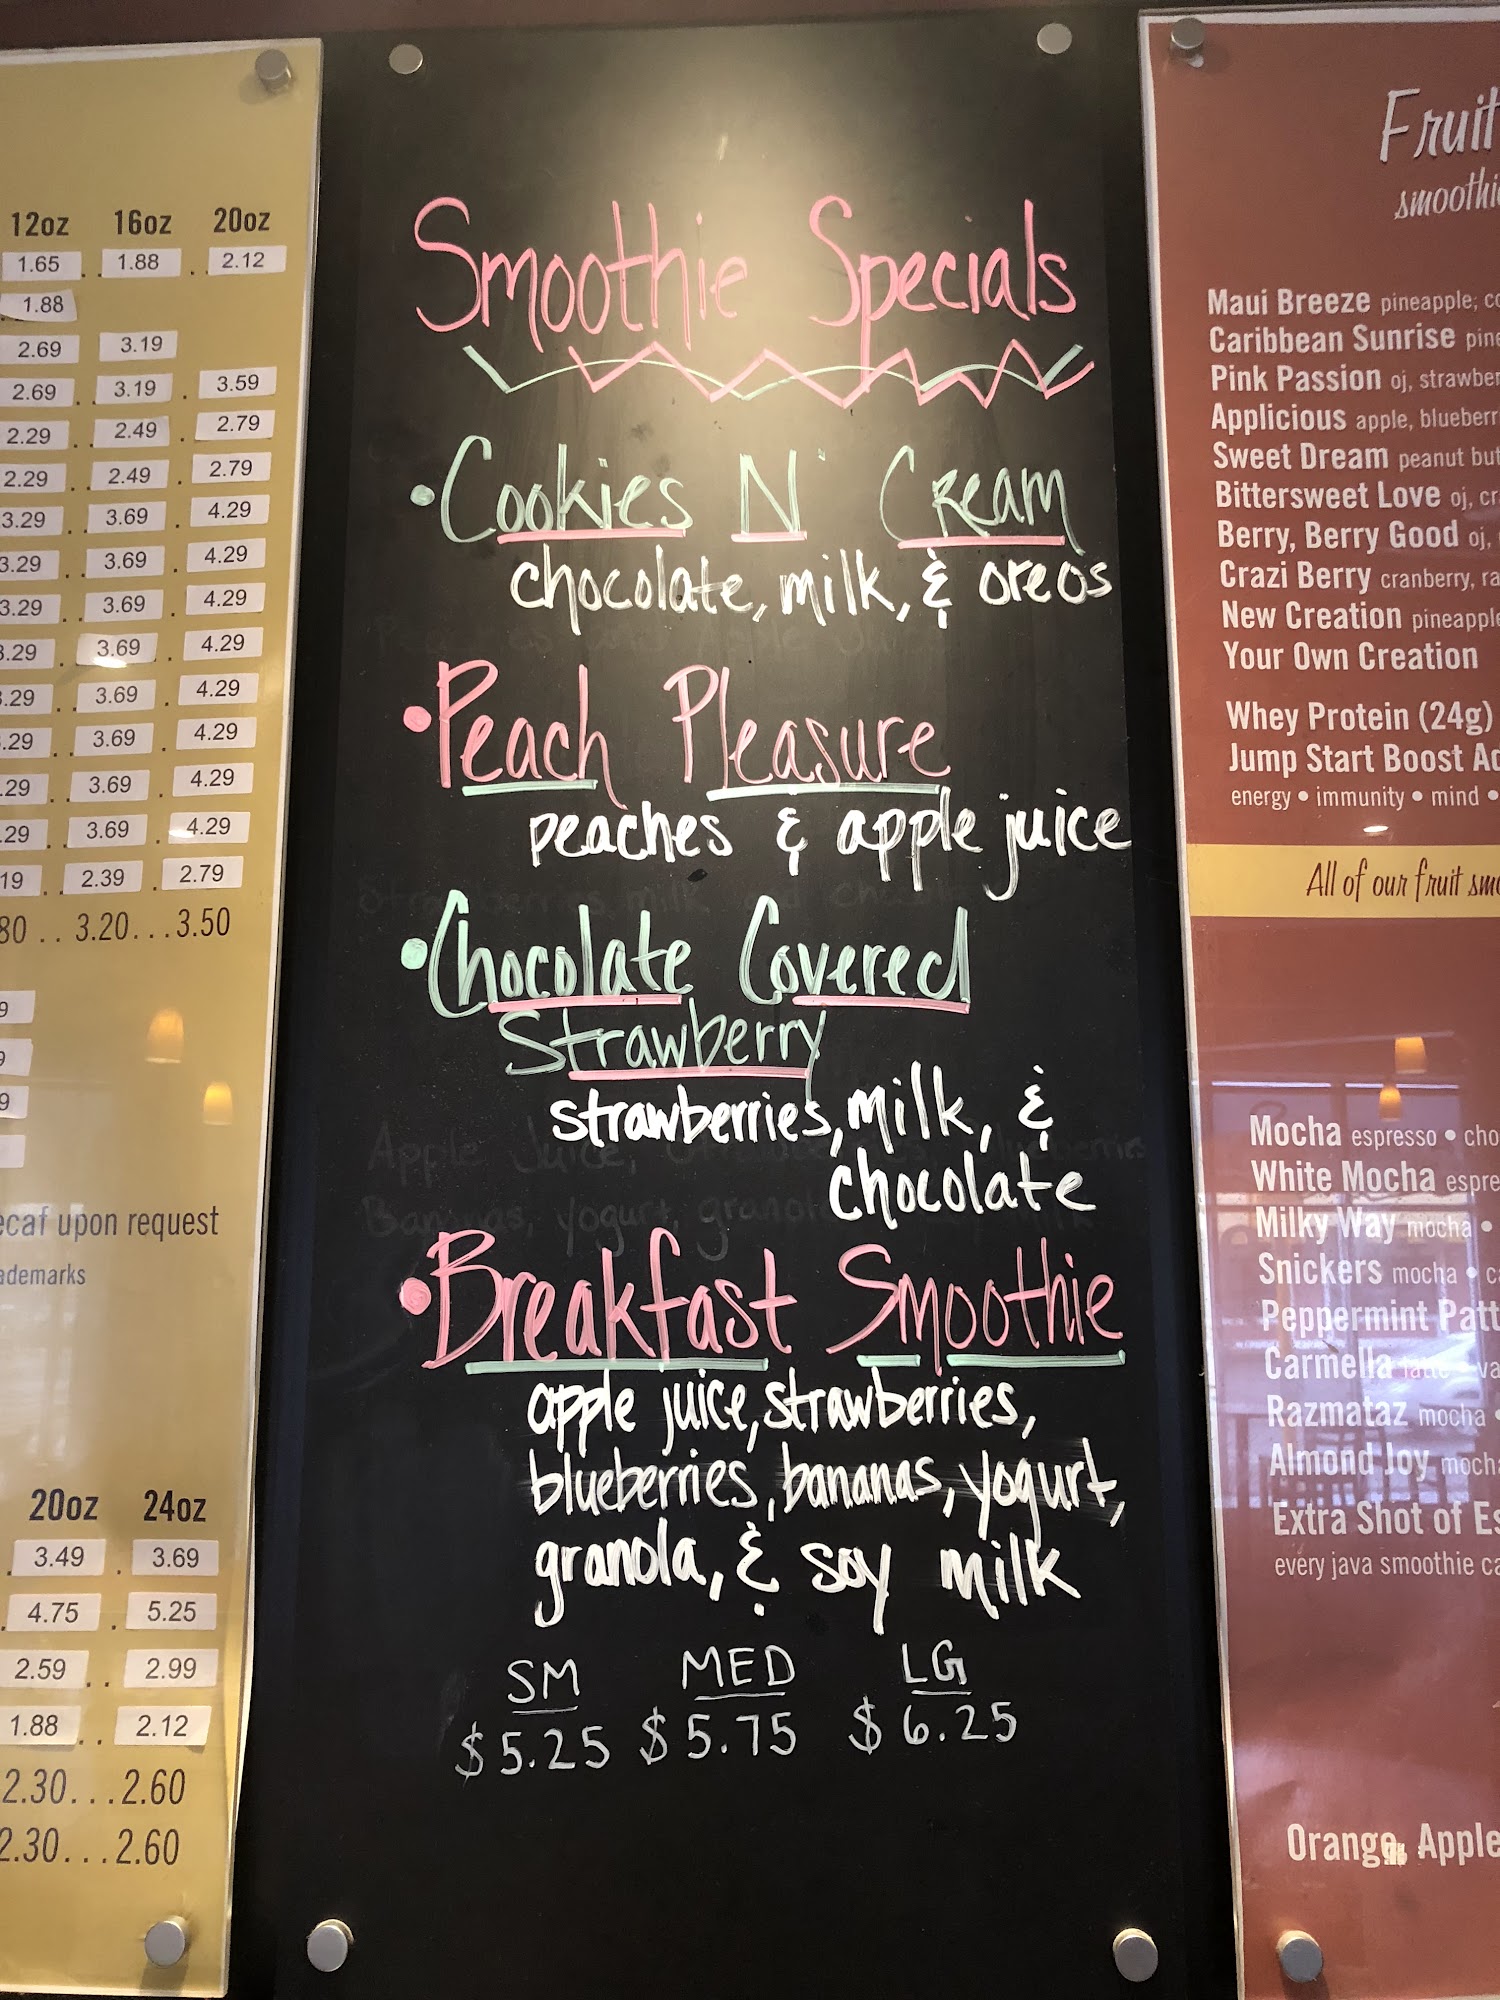 12oz 16oz 20oz
1.65 . . 1.88 . . 2.12
1.88
2.69 3.19
2.69 . . 3.19 . 3.59
2.29 . . 2.49 . 2.79
2.29 . . 2.49 . 2.79
3.29 . . 3.69 . 4.29
3.29 . . 3.69 . 4.29
3.29 . . 3.69 . 4.29
3.29 . . 3.69 . 4.29
.29 . . 3.69 . 4.29
.29 . . 3.69 . 4.29
.29 . . 3.69 . 4.29
.29 . . 3.69 . 4.29
19 . . 2.39 . 2.79
80 . . 3.20 . . . 3.50
9
9
9
ecaf upon request
ademarks
20oz 24oz
3.49 . 3.69
4.75 . 5.25
2.59 . . 2.99
1.88 . . 2.12
2.30 . . . 2.60
2.30 . . . 2.60
Smoothie Specials
• Cookies N' Cream
chocolate, milk, & oreos
• Peach Pleasure
peaches & apple juice
• Chocolate Covered
Strawberry
strawberries, milk, &
chocolate
• Breakfast Smoothie
apple juice, strawberries,
blueberries, bananas, yogurt,
granola, & soy milk
SM MED LG
$5.25 $5.75 $6.25
Fruit
smoothi
Maui Breeze pineapple, co
Caribbean Sunrise pine
Pink Passion oj, strawber
Applicious apple, blueberr
Sweet Dream peanut but
Bittersweet Love oj, cr
Berry, Berry Good oj,
Crazi Berry cranberry, ra
New Creation pineapple
Your Own Creation
Whey Protein (24g)
Jump Start Boost Ad
energy • immunity • mind •
All of our fruit smo
Mocha espresso • cho
White Mocha espre
Milky Way mocha •
Snickers mocha • ca
Peppermint Patt
Carmella latte • va
Razmataz mocha •
Almond Joy mocha
Extra Shot of Es
every java smoothie ca
Orange, Apple